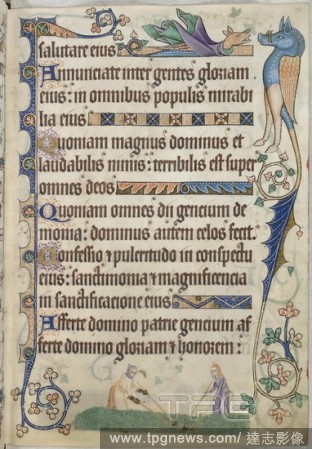 salutare eius
Annunciate inter gentes gloriam
eius: in omnibus populis mirabi
lia eius
Quoniam magnus dominus et
laudabilis nimis: terribilis est super
omnes deos
Quoniam omnes dii gencium de
monia: dominus autem celos fecit.
Confessio et pulcritudo in conspectu
eius: sanctimonia et magnificencia
in sanctificacione eius
Afferte domino patrie gencium af
ferte domino gloriam et honorem:
TPG
www.tpgnews.com/ 達志影像